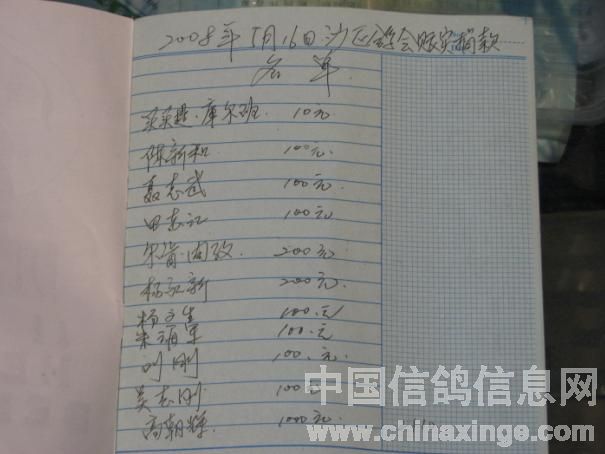 2008年5月16日沙区鸽会赈灾捐款
名单
买买提·库尔班 10元
陈新和 100元
聂志武 100元
田志江 100元
200元
杨新 200元
杨文生 100元
100元
刘刚 100元
吴志刚 100元
高朝辉 1000元
中国信鸽信息网
www.chinaxinge.com